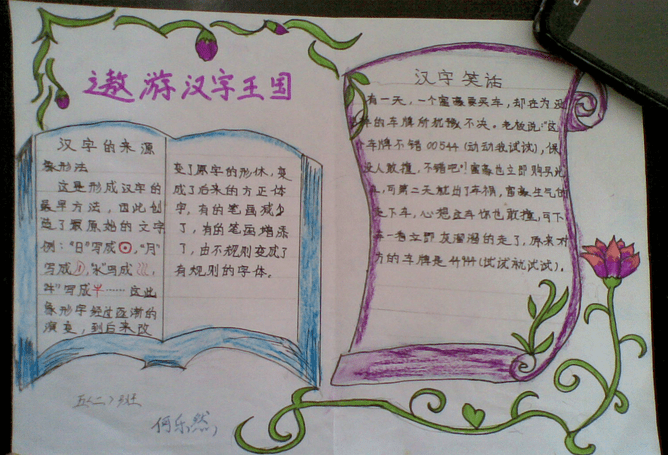 遨游汉字王国
汉字的来源
象形法
这是形成汉字的
最早方法，因此创
造了最原始的文字
例："日"写成⊙，"月"
写成，"水"写成，
"牛"写成……这些
象形字经过逐渐的
演变，到后来改
变了原字的形体，变
成了后来的方正体
字，有的笔画减少
了，有的笔画增添
了，由不规则变成了
有规则的字体。
汉字笑话
有一天，一个富豪要买车，却在为
的车牌所犹豫不决。老板说："这
车牌不错00544（动动我试试），保
没人敢撞，不错吧！"富豪也立即购买
，可第二天就出了车祸，富豪生气
走下车，心想这车你也敢撞，可下
车一看立即灰溜溜的走了，原来对
方的车牌是44944（试试就试试）。
五〈二〉班
何乐然